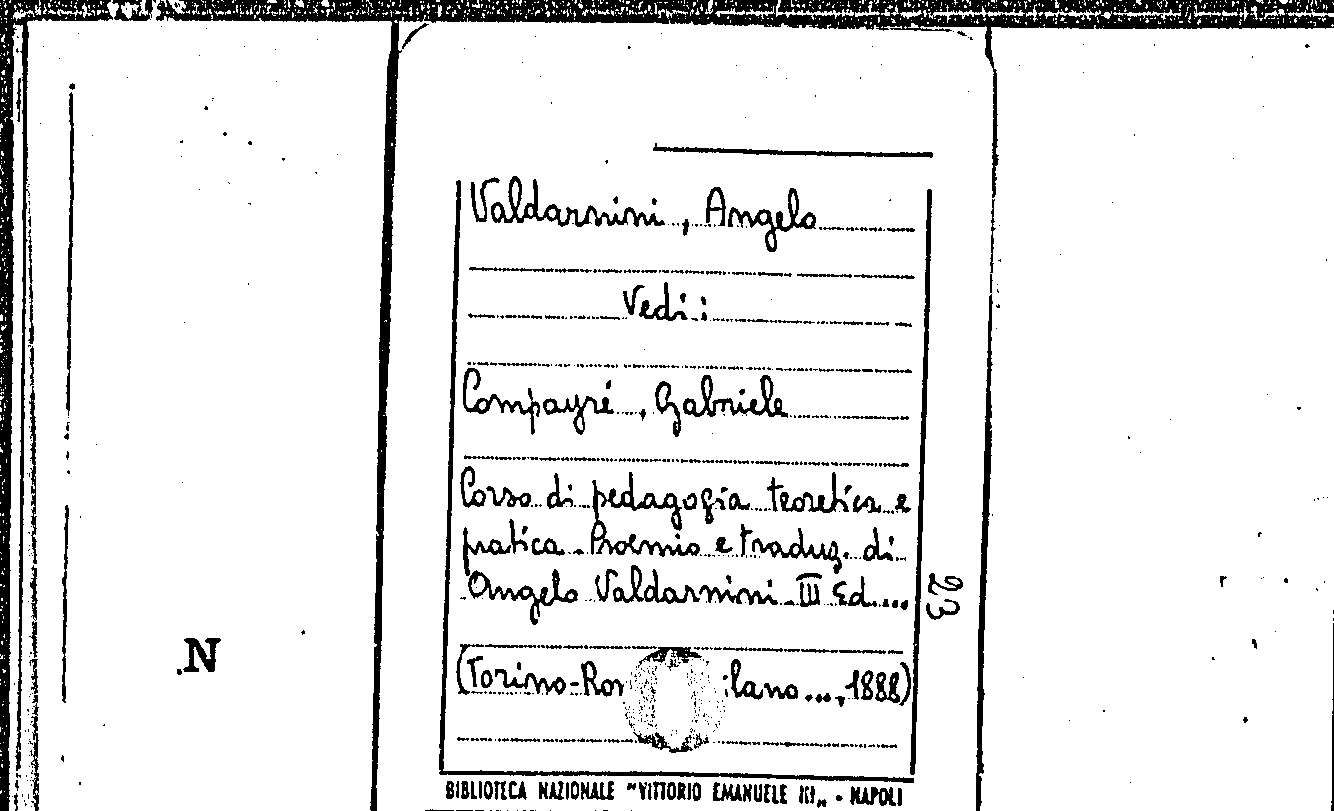 Valdarnini, Angelo
Vedi:
Compayré, Gabriele
Corso di pedagogia teoretica e
pratica. Proemio e traduz. di
Angelo Valdarnini. III Ed....
23
N
(Torino-Rom ilano..., 1888)
BIBLIOTECA NAZIONALE "VITTORIO EMANUELE III„ - NAPOLI